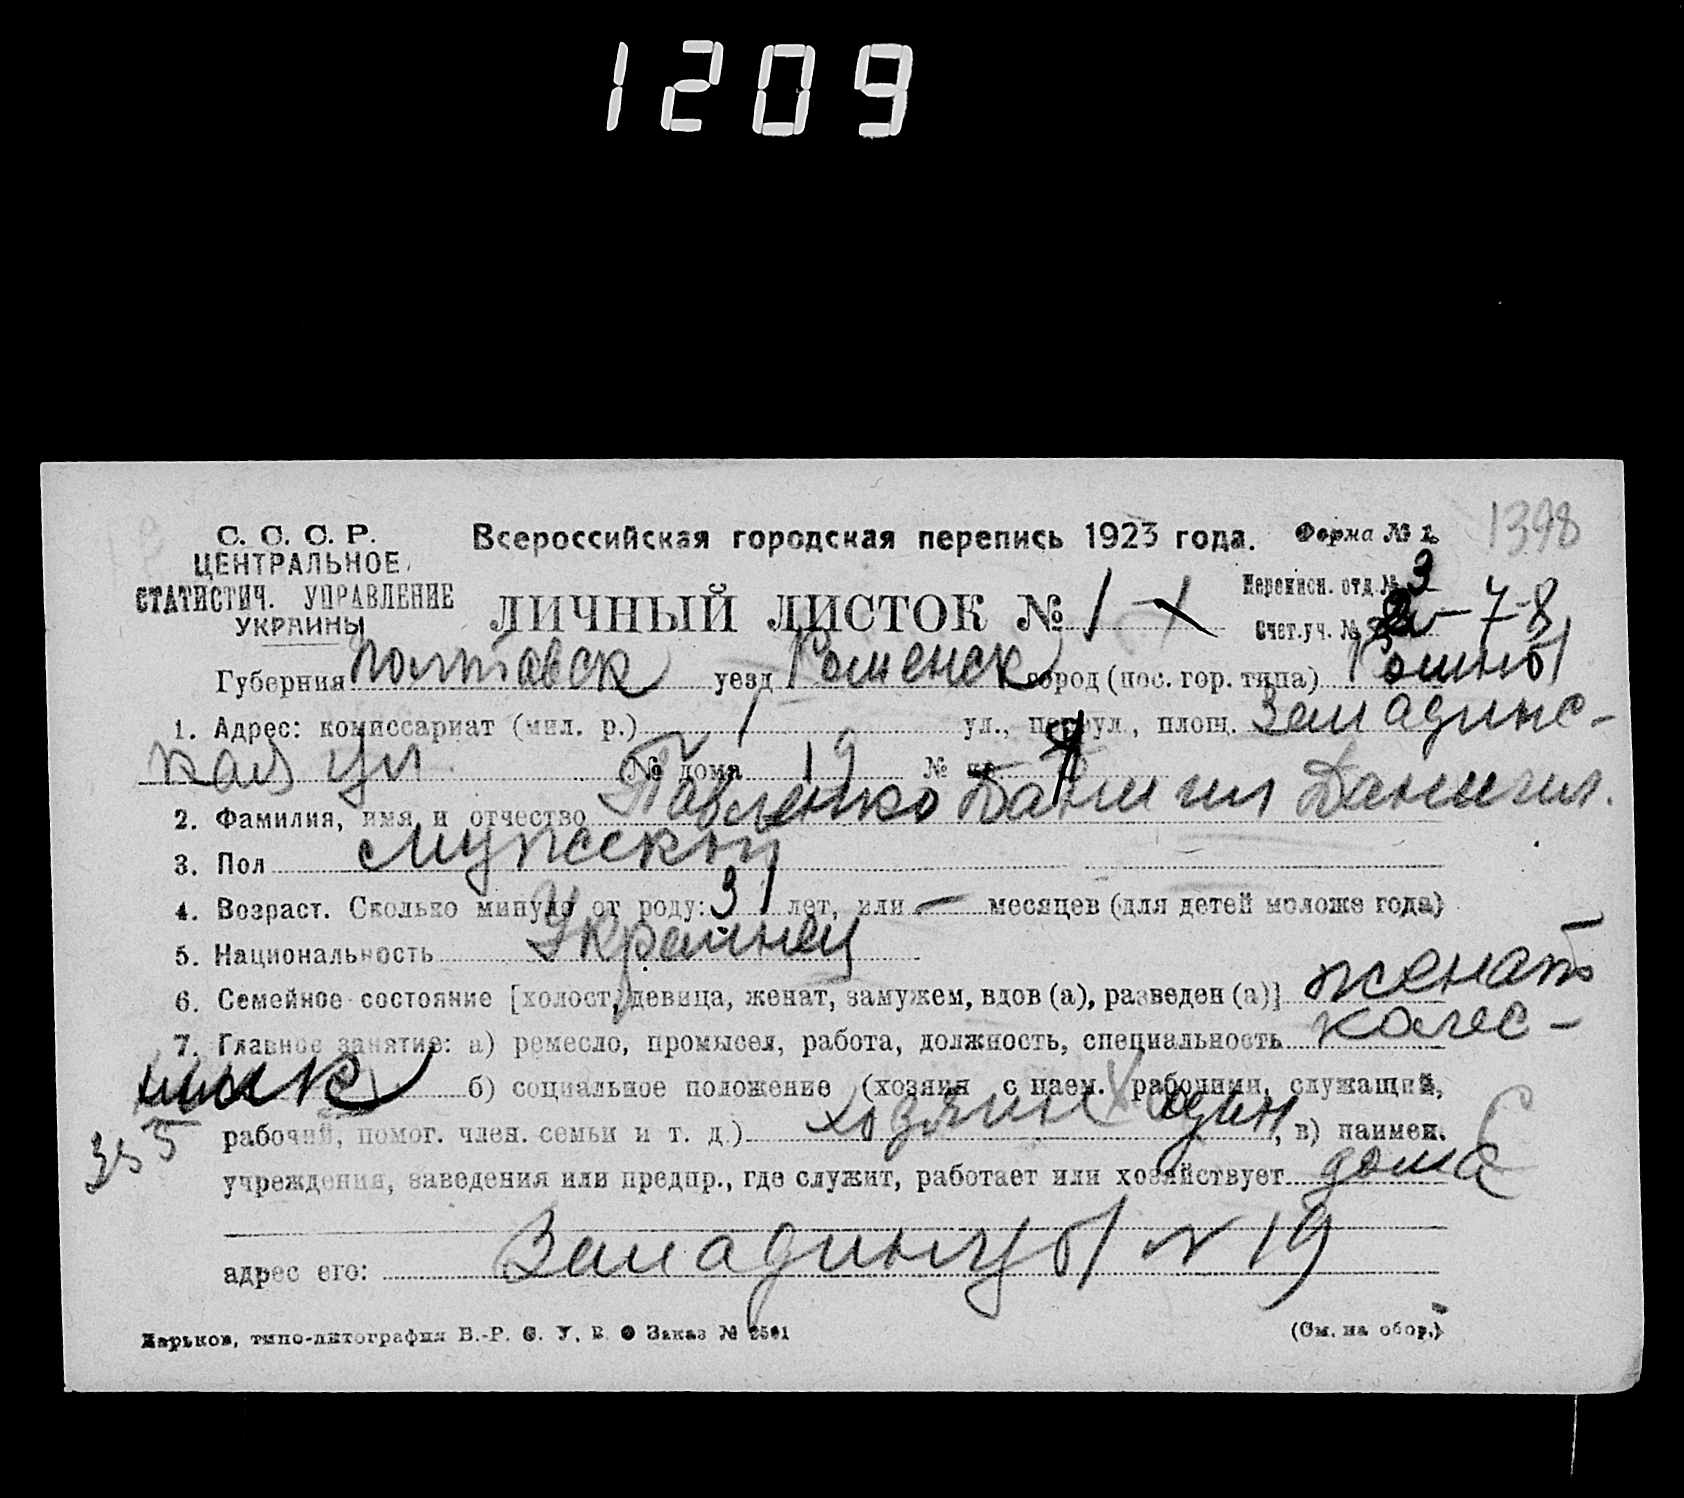 1209
С. С. С. Р.
ЦЕНТРАЛЬНОЕ
СТАТИСТИЧ. УПРАВЛЕНИЕ
УКРАИНЫ
Всероссийская городская перепись 1923 года.
Форма № 1.
1398
ЛИЧНЫЙ ЛИСТОК № 1
Переписн. отд. № 3
Счет. уч. № 7-8
Губерния Полтавск уезд Роменск город (пос. гор. типа) Ромны
1. Адрес: комиссариат (мил. р.) 1 ул., переул., площ. Западинс-
кая ул № дома 19 № кв.
2. Фамилия, имя и отчество Павленко Даниил Даниил.
3. Пол Мужской
4. Возраст. Сколько минуло от роду: 31 лет, или — месяцев (для детей моложе года)
5. Национальность Украинец
6. Семейное состояние [холост, девица, женат, замужем, вдов (а), разведен (а)] женат
7. Главное занятие: а) ремесло, промысел, работа, должность, специальность колес-
ник б) социальное положение (хозяин с наем. рабочими, служащий,
355
рабочий, помог. член. семьи и т. д.) хозяин один, в) наимен.
учреждения, заведения или предпр., где служит, работает или хозяйствует дома
адрес его: № 19
Харьков, типо-литография В.-Р. С. У. Заказ №
(См. на обор.)